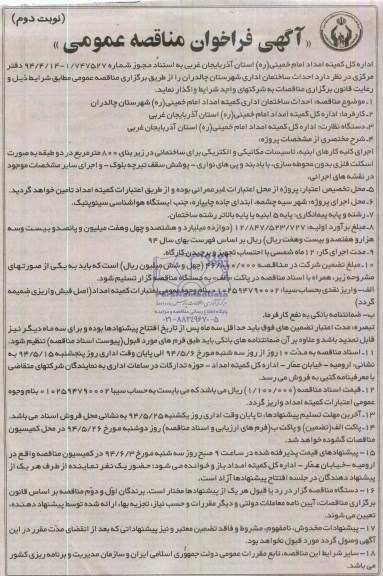 (نوبت دوم)
« آگهی فراخوان مناقصه عمومی »
اداره کل کمیته امداد امام خمینی(ره) استان آذربایجان غربی به استناد مجوز شماره ۱/۷۴۷۵۲۷-۹۴/۴/۱۴ دفتر
مرکزی در نظر دارد احداث ساختمان اداری شهرستان چالدران را از طریق برگزاری مناقصه عمومی مطابق شرایط ذیل و
رعایت قانون برگزاری مناقصات به شرکتهای واجد شرایط واگذار نماید.
۱-موضوع مناقصه: احداث ساختمان اداری کمیته امداد امام خمینی(ره) شهرستان چالدران
۲-کارفرما: اداره کل کمیته امداد امام خمینی(ره) استان آذربایجان غربی
۳-دستگاه نظارت: اداره کل کمیته امداد امام خمینی(ره) استان آذربایجان غربی
۴-شرح مختصری از مشخصات پروژه:
اجرای کلیه کارهای ابنیه، تاسیسات مکانیکی و الکتریکی برای ساختمانی در زیر بنای ۸۰۰ مترمربع در دو طبقه به صورت
اسکلت فلزی بدون محوطه‌سازی، با بادبند و پی های نواری - پوشش سقف تیرچه بلوک - و اجرای سایر مشخصات موجود
در نقشه های اجرائی.
۵-محل تخصیص اعتبار: پروژه از محل اعتبارات غیرعمرانی بوده و از طریق اعتبارات کمیته امداد تامین خواهد گردید.
۶-محل اجرای پروژه: شهر سیه چشمه، ابتدای جاده چایپاره، جنب ایستگاه هواشناسی سینوپتیک.
۷-رشته و پایه پیمانکاری: پایه ۵ ابنیه یا پایه بالاتر رشته ساختمان.
۸-مبلغ برآورد اولیه: ۱۲/۸۴۷/۵۲۳/۷۲۷ (دوازده میلیارد و هشتصدو چهل وهفت میلیون و پانصدو بیست وسه
هزارو هفتصدو بیست وهفت ریال) ریال بر اساس فهرست بهای سال ۹۴
۹-مدت اجرای کار: ۱۲ ماه شمسی با احتساب تجهیز و برچیدن کارگاه.
۱۰-مبلغ تضمین شرکت در مناقصه: (چهل و شش میلیون ریال) است که باید به یکی از صورتهای
مشروحه زیر همراه با اسناد مناقصه در پاکت «الف» به دستگاه مناقصه گزار تسلیم شود.
الف-واریز نقدی بحساب سیبا ۰۱۰۲۵۹۴۷۹۰۰۰۲ بنام وجوه عمومی اعتبارات کمیته امداد(اصل فیش واریزی ضمیمه
گردد)
ب- ضمانتنامه بانکی به نفع کارفرما.
تبصره: مدت اعتبار تضمین های فوق باید حداقل سه ماه پس از تاریخ افتتاح پیشنهادها بوده و برای سه ماه دیگر نیز
قابل تمدید باشد و علاوه بر آن ضمانتنامه های بانکی باید طبق فرم های مورد قبول(پیوست اسناد مناقصه) تنظیم شود.
۱۱-اسناد مناقصه به مدت ۱۰ روز از روز سه شنبه مورخ ۹۴/۵/۶ الی پایان وقت اداری روز پنجشنبه ۹۴/۵/۱۵ به
نشانی: ارومیه - خیابان عمار - اداره کل کمیته امداد - حوزه تدارکات در ساعات اداری به نمایندگان شرکتهای متقاضی
با معرفینامه کتبی به فروش می رسد.
۱۲-قیمت اسناد مناقصه (۱/۱۰۰/۰۰۰) ریال می باشد که می بایست به حساب سیبا ۰۱۰۲۵۹۴۷۹۰۰۰۲ بنام وجوه
عمومی اعتبارات کمیته امداد واریز گردد.
۱۳-آخرین مهلت تسلیم پیشنهادها، تا پایان وقت اداری روز یکشنبه ۹۴/۵/۲۵ به نشانی محل فروش اسناد می باشد.
۱۴-پاکت الف(تضمین) و پاکت ب(فرم های ارزیابی و اسناد مناقصه) روز دوشنبه مورخ ۹۴/۵/۲۶ در محل کمیسیون
مناقصات گشوده خواهد شد.
۱۵-پیشنهادهای قیمت پذیرفته شده در ساعت ۹ صبح روز سه شنبه مورخ ۹۴/۶/۳ در کمیسیون مناقصه واقع در
ارومیه-خیابان عمار-اداره کل کمیته امداد باز و خوانده می شود؛ حضور یک نفر نماینده از طرف هر یک از
پیشنهاد دهندگان در جلسه افتتاح پیشنهادها آزاد است.
۱۶-دستگاه مناقصه گزار در رد یا قبول هر یک از پیشنهادها مختار است. برندگان اول و دوم مناقصه بر اساس قانون
برگزاری مناقصات، آیین نامه معاملات دولتی و دیگر مقررات و حسب نیاز، تجزیه بها، ارائه شده توسط پیشنهاد دهنده،
تعیین می شوند.
۱۷-پیشنهادات مخدوش، نامفهوم، مشروط و فاقد تضمین معتبر و نیز پیشنهاداتی که بعد از انقضای مدت مقرر در این
آگهی وصول گردد مورد قبول نخواهد بود.
۱۸-سایر شرایط این مناقصه، تابع مقررات عمومی دولت جمهوری اسلامی ایران و سازمان مدیریت و برنامه ریزی کشور
می باشد.